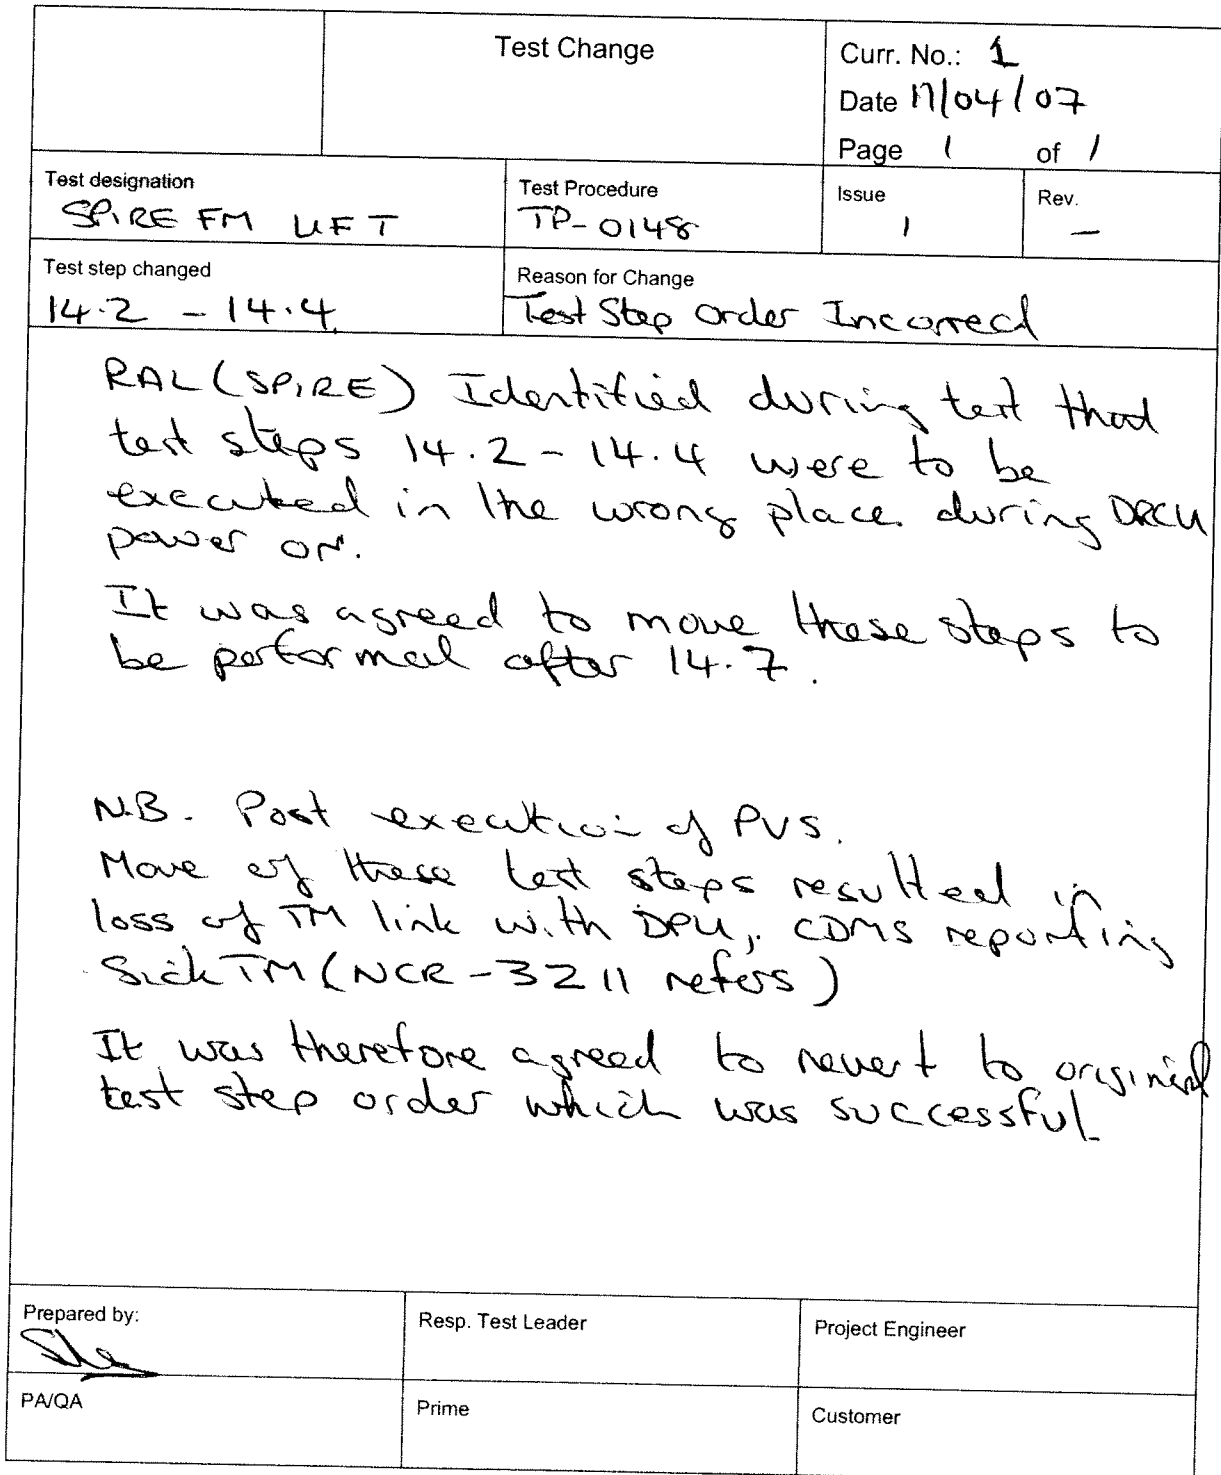 Test Change
Curr. No.: 1
Date 17/04/07
Page 1 of 1
Test designation
SPIRE FM UFT
Test Procedure
TP-0148
Issue
1
Rev.
—
Test step changed
14.2 - 14.4
Reason for Change
Test Step Order Incorrect
RAL (SPIRE) Identified during test that
test steps 14.2 - 14.4 were to be
executed in the wrong place during DRCU
power on.
It was agreed to move these steps to
be performed after 14.7.
N.B. Post execution of PVS.
Move of these test steps resulted in
loss of TM link with DPU, CDMS reporting
Sick TM (NCR-3211 refers)
It was therefore agreed to revert to original
test step order which was successful.
Prepared by:
Resp. Test Leader
Project Engineer
PA/QA
Prime
Customer